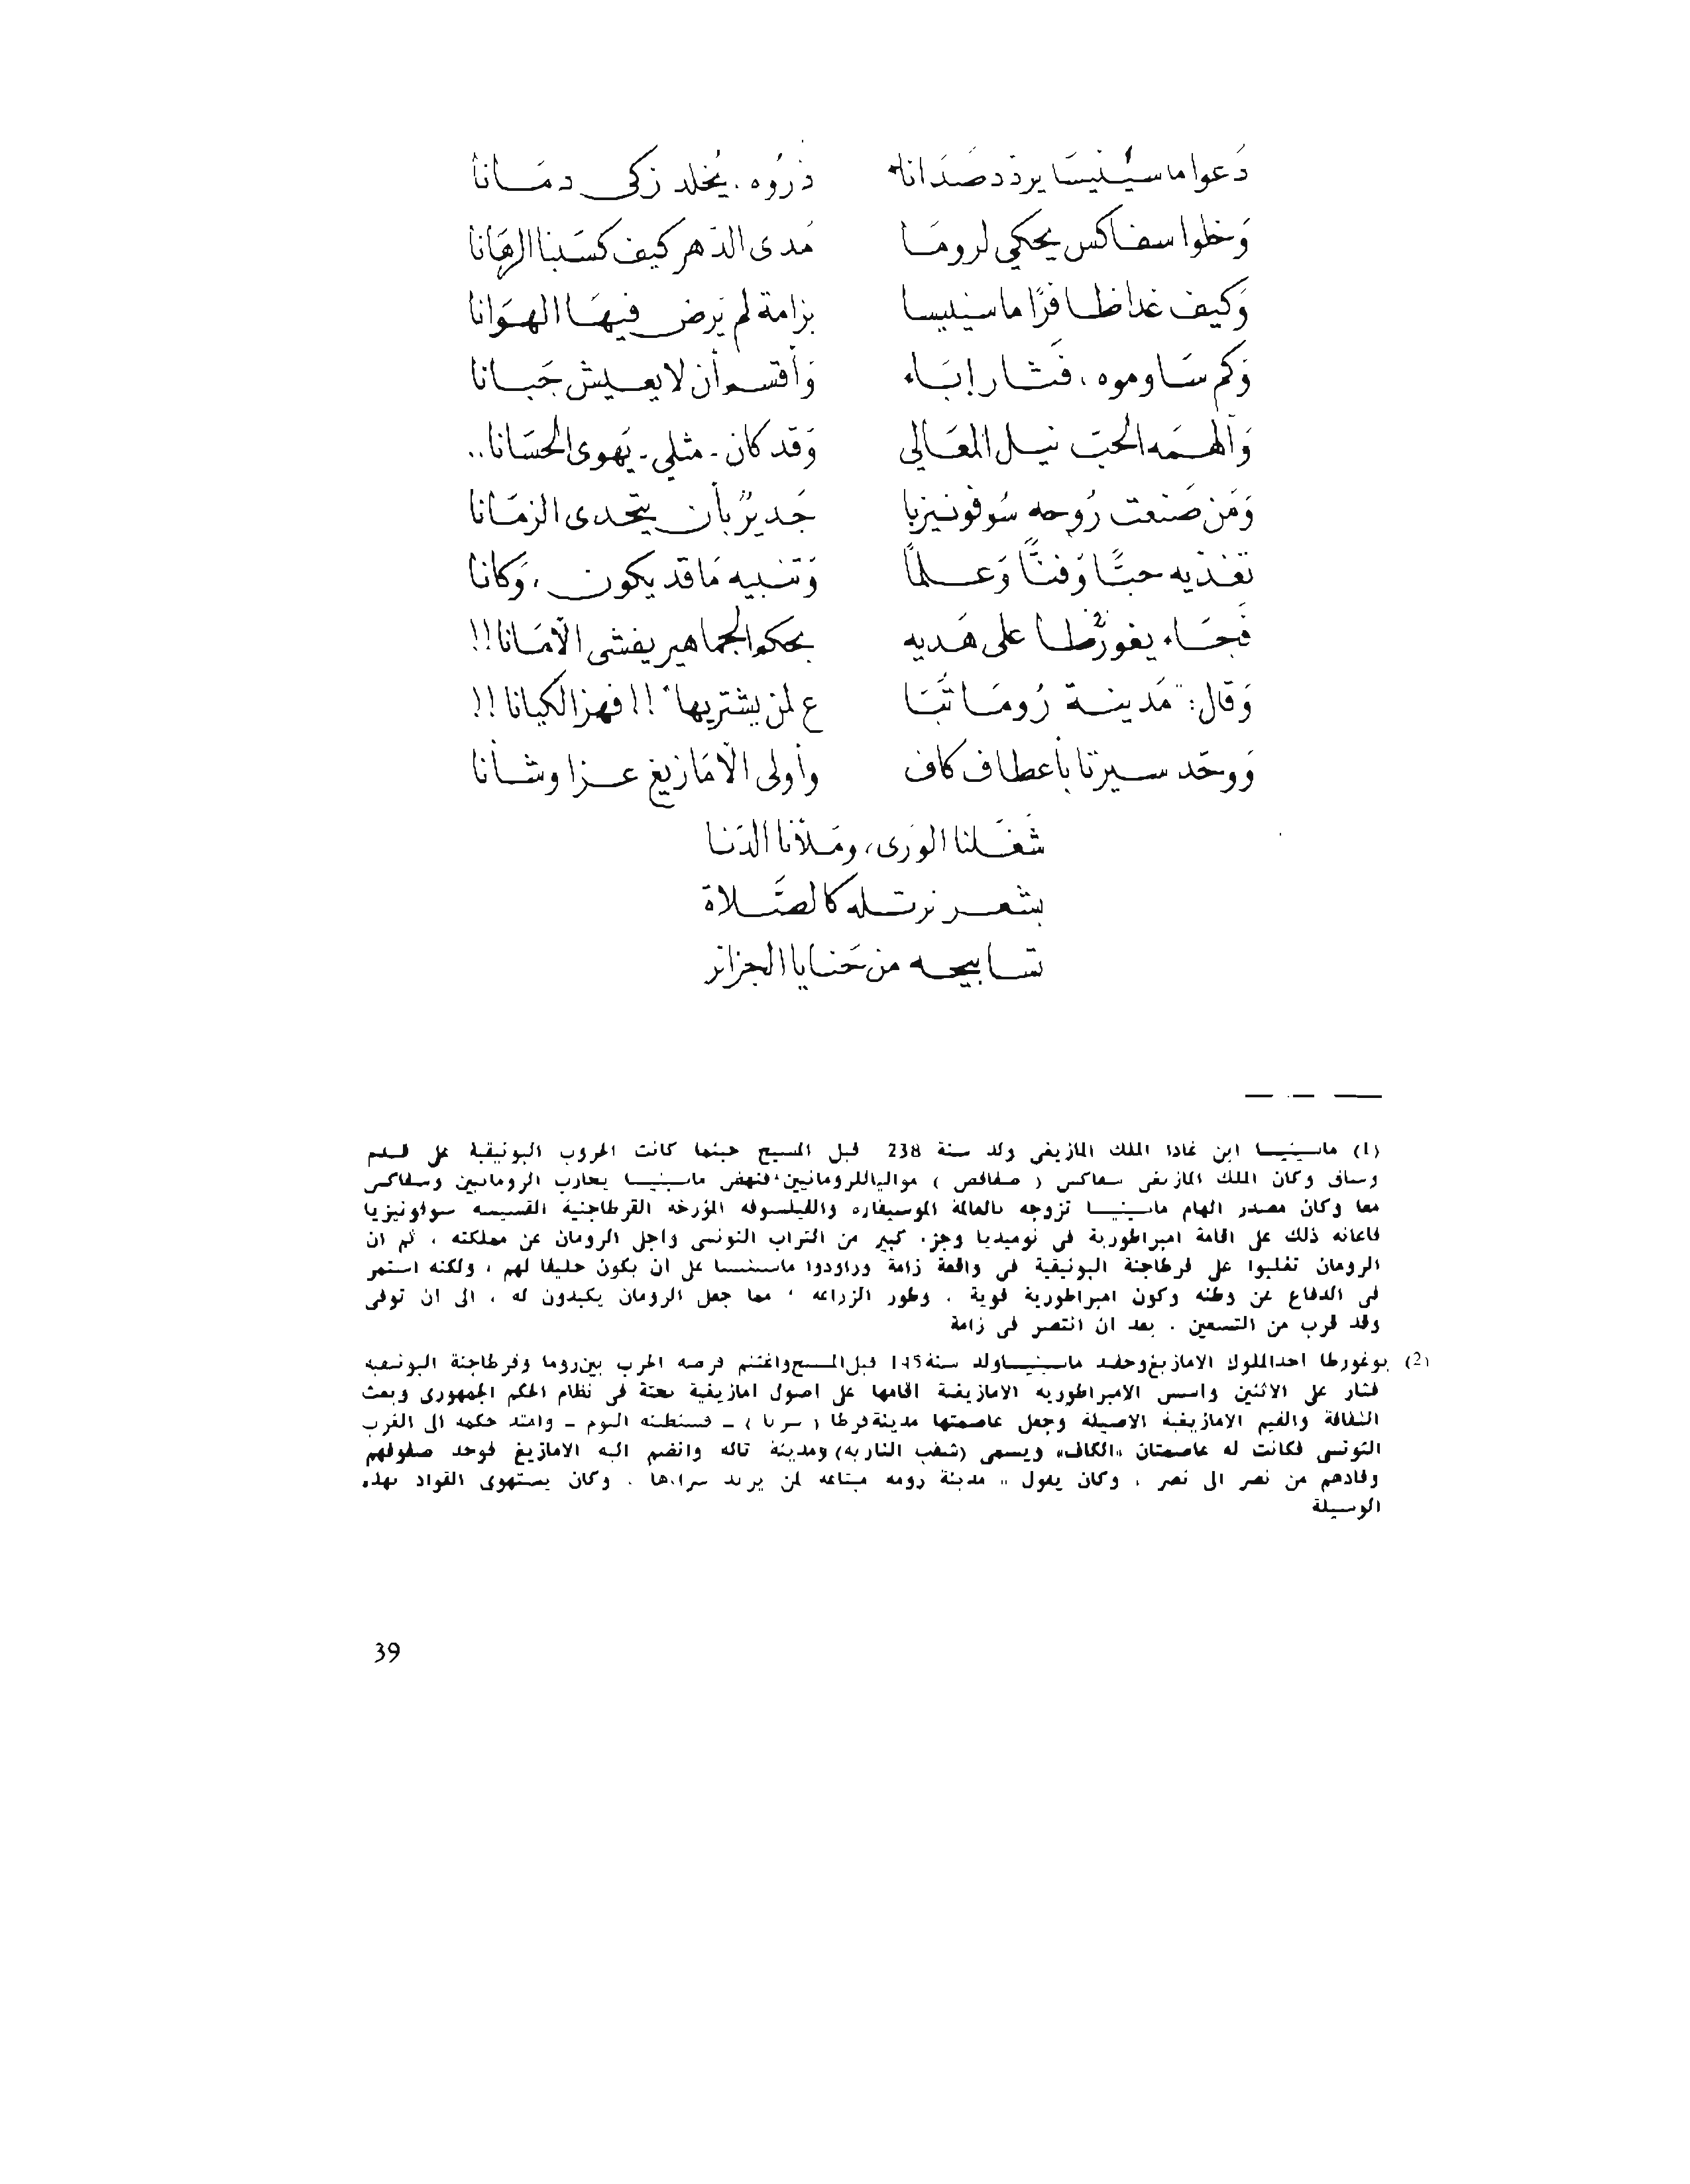 دَعوا ماسينيسَا يردّد صَدَانا ذَرُوه، يُخلد زكى دمَانا
وَخلوا سفاكس يحكي لرومَا مَدى الدّهر كيف كسَبنا الرهَانا
وَكيف غدا ظافرًا ماسينيسا بزامة لم يَرض فيهَا الهوَانا
وَكم سَاوموه، فَثار إبَاء وَأقسم أن لا يعيش جَبانا
وَألهمَه الحبّ نيل المعَالي وَقد كان - مثلي - يَهوى الحسَانا..
وَمَن صَنعت رُوحه سُوفونيزبا جَديرٌ بأن يتحَدى الزمَانا
تغذيه حبًّا وَفنًّا وَعلمًا وَتنبيه مَا قد يكون، وَكانا
فَجَاء يغورُطا (2) على هَديه بحكم الجماهير يفشي الأمَانا!!
وَقال: "مَدينة رُومَا تُبَا ع لمن يشتريها"!! فهز الكيانا!!
وَوحّد سيرتا بأعطاف كاف وأولى الأمَازيغ عزا وشأنا
شَغَلنا الورَى، ومَلأنا الدّنا
بشعر نرتله كالصَّلاة
تسابيحه من حَنايا الجزائر
(1) ماسينيسا ابن غادا الملك المازيغى ولد سنة 238 قبل المسيح حينما كانت الحروب البونيقية على قدم
وساق وكان الملك المازيغى سفاكس ( صفاقص ) مواليا للرومانيين، فنهض ماسينيسا يحارب الرومانيين وسفاكس
معا وكان مصدر الهام ماسينيسا تزوجه بالعالمة الموسيقاره والفيلسوفه المؤرخه القرطاجنية القسيسه سوفونيزبا
فاعانه ذلك على اقامة امبراطورية فى نوميديا وجزء كبير من التراب التونسى واجلى الرومان عن مملكته ، ثم ان
الرومان تغلبوا على قرطاجنة البونيقية فى واقعة زامة وراودوا ماسينيسا على ان يكون حليفا لهم ، ولكنه استمر
فى الدفاع عن وطنه وكون امبراطورية قوية ، وطور الزراعه ، مما جعل الرومان يكيدون له ، الى ان توفى
وقد قرب من التسعين ، بعد ان انتصر فى زامة
(2) يوغورطا احد الملوك الامازيغ وحفيد ماسينيسا ولد سنة 145 قبل المسيح واغتنم فرصه الحرب بين روما وقرطاجنة البونيقيه
فثار على الاثنين واسس الامبراطوريه الامازيغية اقامها على اصول امازيغية بحتة فى نظام الحكم الجمهورى وبعث
الثقافة والقيم الامازيغية الاصيلة وجعل عاصمتها مدينة قرطا ( سرتا ) - قسنطينه اليوم - وامتد حكمه الى الغرب
التونسى فكانت له عاصمتان «الكاف» ويسمى (شقب الناريه) ومدينة تاله وانضم اليه الامازيغ فوحد صفوفهم
وقادهم من نصر الى نصر ، وكان يقول " مدينة رومه مبتاعه لمن يريد شراءها ، وكان يستهوى القواد بهذه
الوسيلة
39